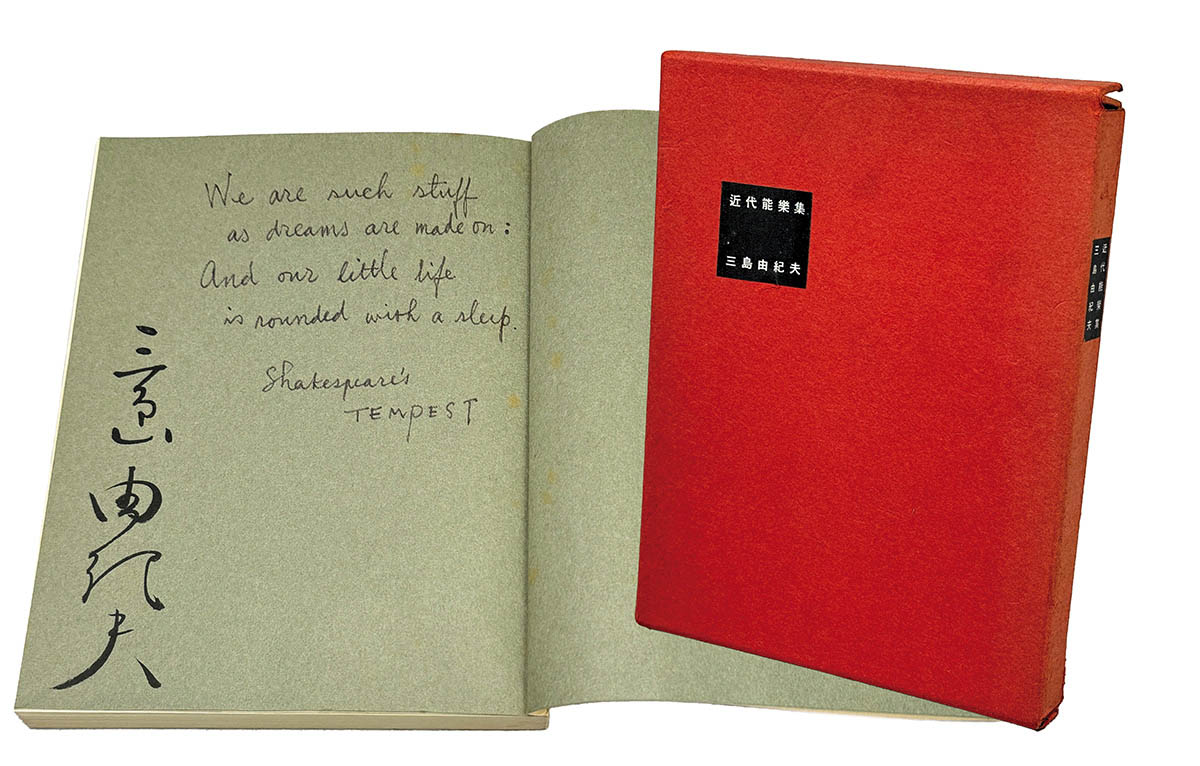 We are such stuff
as dreams are made on :
And our little life
is rounded with a sleep.
Shakespeare's
TEMPEST
三島由紀夫
近代能樂集
三島由紀夫
近代能樂集
三島由紀夫